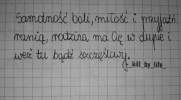 Samotność boli, miłość i przyjaźń
ranią, rodzina ma Cię w dupie i
weź tu bądź szczęśliwy.
kill_by_life_